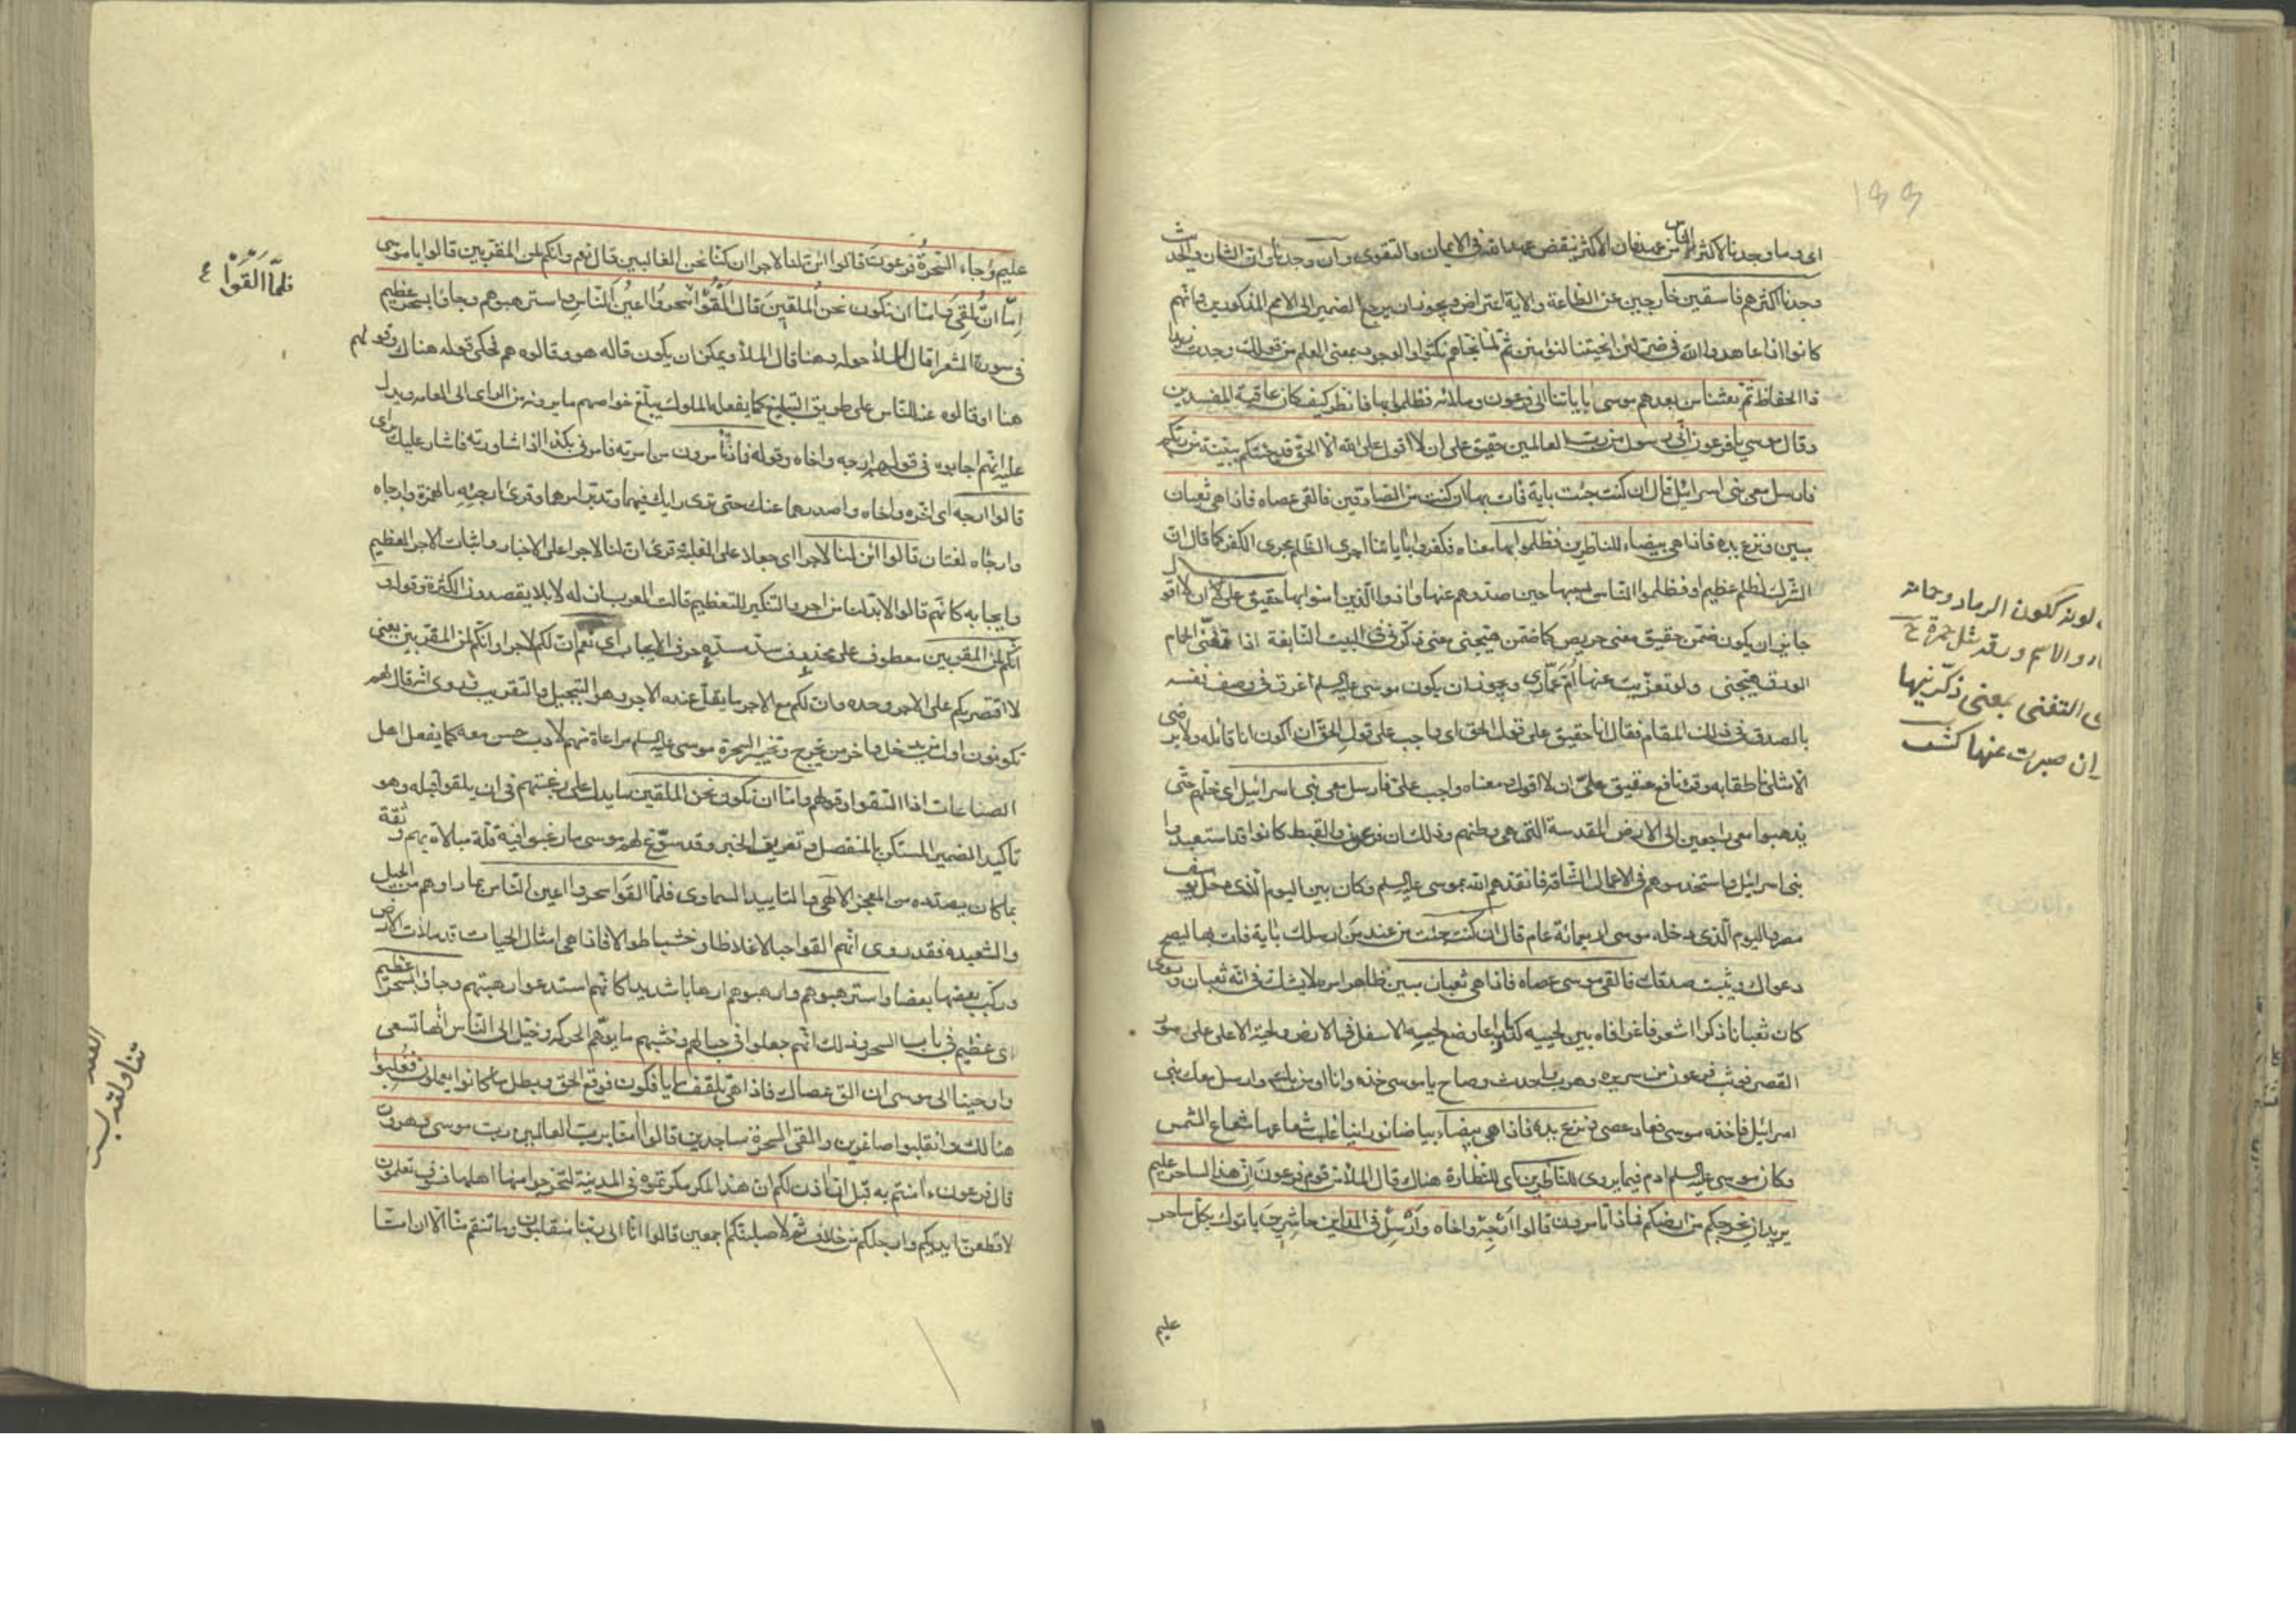 اى وما وجدنا لاكثر الناس من عهد فان الاكثر ينقض عهد الله فى الايمان والتقوى وان وجدنا وان الشان والحديث
وجدنا اكثرهم فاسقين خارجين عن الطاعة والاية اعتراض ويجوز ان يرجع الضمير الى الامم المذكورين وانهم
كانوا اذا عاهدوا الله فى ضر لئن انجيتنا لنؤمنن ثم لما نجاهم نكثوا والوجود بمعنى العلم من قولك وجدت زيدا
ذا الحفاظ ثم بعثنا من بعدهم موسى باياتنا الى فرعون وملائه فظلموا بها فانظر كيف كان عاقبة المفسدين
وقال موسى يا فرعون انى رسول من رب العالمين حقيق على ان لا اقول على الله الا الحق قد جئتكم ببينة من ربكم
فارسل معى بنى اسرائيل قال ان كنت جئت باية فات بها ان كنت من الصادقين فالقى عصاه فاذا هى ثعبان
مبين ونزع يده فاذا هى بيضاء للناظرين فظلموا بها معناه فكفروا باياتنا اجرى الظلم مجرى الكفر كما قال ان
الشرك لظلم عظيم او فظلموا الناس بسببها حين صدوهم عنها واذوا الذين امنوا بها حقيق على ان لا اقول
جايز ان يكون ضمن حقيق معنى حريص كما ضمن هيجنى معنى ذكرنى فى البيت النابغة اذا تغنى الحمام
الورق هيجنى ولو تعزيت عنها ام عمار ويجوز ان يكون موسى عليه السلم اغرق فى وصف نفسه
بالصدق فى ذلك المقام فقال انا حقيق على قول الحق اى واجب على قول الحق ان اكون انا قائله ولا يرضى
الا مثلى ناطقا به وقرء نافع حقيق على ان لا اقول ومعناه واجب على فارسل معى بنى اسرائيل اى خلهم حتى
يذهبوا معى راجعين الى الارض المقدسة التى هى وطنهم وذلك ان فرعون والقبط كانوا قد استعبدوا
بنى اسرائيل واستخدموهم فى الاعمال الشاقة فانقذهم الله بموسى عليه السلم وكان بين اليوم الذى دخل يوسف
مصر واليوم الذى دخله موسى اربعمائة عام قال ان كنت جئت من عند من ارسلك باية فات بها ليصح
دعواك ويثبت صدقك فالقى موسى عصاه فاذا هى ثعبان مبين ظاهر امره لا يشك فى انه ثعبان وروى
كان ثعبانا ذكرا اشعر فاغرا فاه بين لحييه كذا ذراعا وضع لحييه الاسفل فى الارض ولحيه الاعلى على سور
القصر فوثب فرعون من سريره وهرب واحدث وصاح يا موسى خذه وانا اومن بك وارسل معك بنى
اسرائيل فاخذه موسى فعاد عصى ونزع يده فاذا هى بيضاء بياضا نورانيا غلب شعاعها شعاع الشمس
وكان موسى عليه السلم ادم فيما يروى للناظرين اى للنظارة هناك قال الملأ من قوم فرعون ان هذا لساحر عليم
يريد ان يخرجكم من ارضكم فماذا تامرون قالوا ارجه واخاه وارسل فى المداين حاشرين ياتوك بكل ساحر
عليم
لونه كلون الرماد وحمامة
والاسم ورقه مثل حمرة ح
التغنى بمعنى ذكرنيها
ان صبرت عنها كشف
عليم وجاء السحرة فرعون قالوا ائن لنا لاجرا ان كنا نحن الغالبين قال نعم وانكم لمن المقربين قالوا يا موسى
اما ان تلقى واما ان نكون نحن الملقين قال القوا سحروا اعين الناس واسترهبوهم وجاؤا بسحر عظيم
فى سورة الشعرا قال للملأ حوله وهنا قال الملأ ويمكن ان يكون قاله هو وقالوه هم فحكى قوله هناك وقولهم
هنا او قالوه عنه للناس على طريق التبليغ كما يفعله الملوك يبلغ خواصهم ما يرونه من الراى الى العامه ويدل
عليه انهم اجابوه فى قولهم ارجه واخاه وقوله فماذا تامرون من امرته فامرنى بكذا اذا شاورته فاشار عليك براى
قالوا ارجه اى اخره واخاه واصدرهما عنك حتى ترى رايك فيهما وتدبر امرهما وقرئ ارجئه بالهمزة وارجاه
وارجاه لغتان قالوا ائن لنا لاجرا اى جعلا على الغلبة وقرئ ان لنا لاجرا على الاخبار واثبات الاجر العظيم
وايجابه كانهم قالوا لابد لنا من اجر والتنكير للتعظيم قالت العرب ان له لابلا يقصدون الكثرة وقوله و
انكم لمن المقربين معطوف على محذوف سد مسده حرف الايجاب اى نعم ان لكم لاجرا وانكم لمن المقربين يعنى
لا اقتصر بكم على الاجر وحده وان لكم مع الاجر ما يقل عنده الاجر وهو التبجيل والتقريب وروى انه قال لهم
تكونون اول من يدخل واخر من يخرج وتخيير السحرة موسى عليه السلم مراعاة منهم لادب حسن معه كما يفعل اهل
الصناعات اذا التقوا وقولهم واما ان نكون نحن الملقين ما يدل على رغبتهم فى ان يلقوا قبله وهو
تاكيد الضمير المستكن بالمنفصل وتعريف الخبر وقد سوغ لهم موسى ما رغبوا فيه قلة مبالاة بهم وثقة
بما كان بصدده من المعجز الالهى والتاييد السماوى فلما القوا سحروا اعين الناس بما اروهم من الحيل
والشعبده فقد روى انهم القوا حبالا غلاظا وخشبا طوالا فاذا هى امثال الحيات قد ملأت الارض
وركب بعضها بعضا واسترهبوهم وارهبوهم ارهابا شديدا كانهم استدعوا رهبتهم وجاؤا بسحر عظيم
اى عظيم فى باب السحر وذلك انهم جعلوا فى حبالهم وخشبهم ما يوهم الحركة وخيل الى الناس انها تسعى
واوحينا الى موسى ان الق عصاك فاذا هى تلقف ما يافكون فوقع الحق وبطل ما كانوا يعملون فغلبوا
هنالك وانقلبوا صاغرين والقى السحرة ساجدين قالوا امنا برب العالمين رب موسى وهرون
قال فرعون ءامنتم به قبل ان اذن لكم ان هذا لمكر مكرتموه فى المدينة لتخرجوا منها اهلها فسوف تعلمون
لاقطعن ايديكم وارجلكم من خلاف ثم لاصلبنكم اجمعين قالوا انا الى ربنا منقلبون وما تنقم منا الا ان امنا
فلما القوا